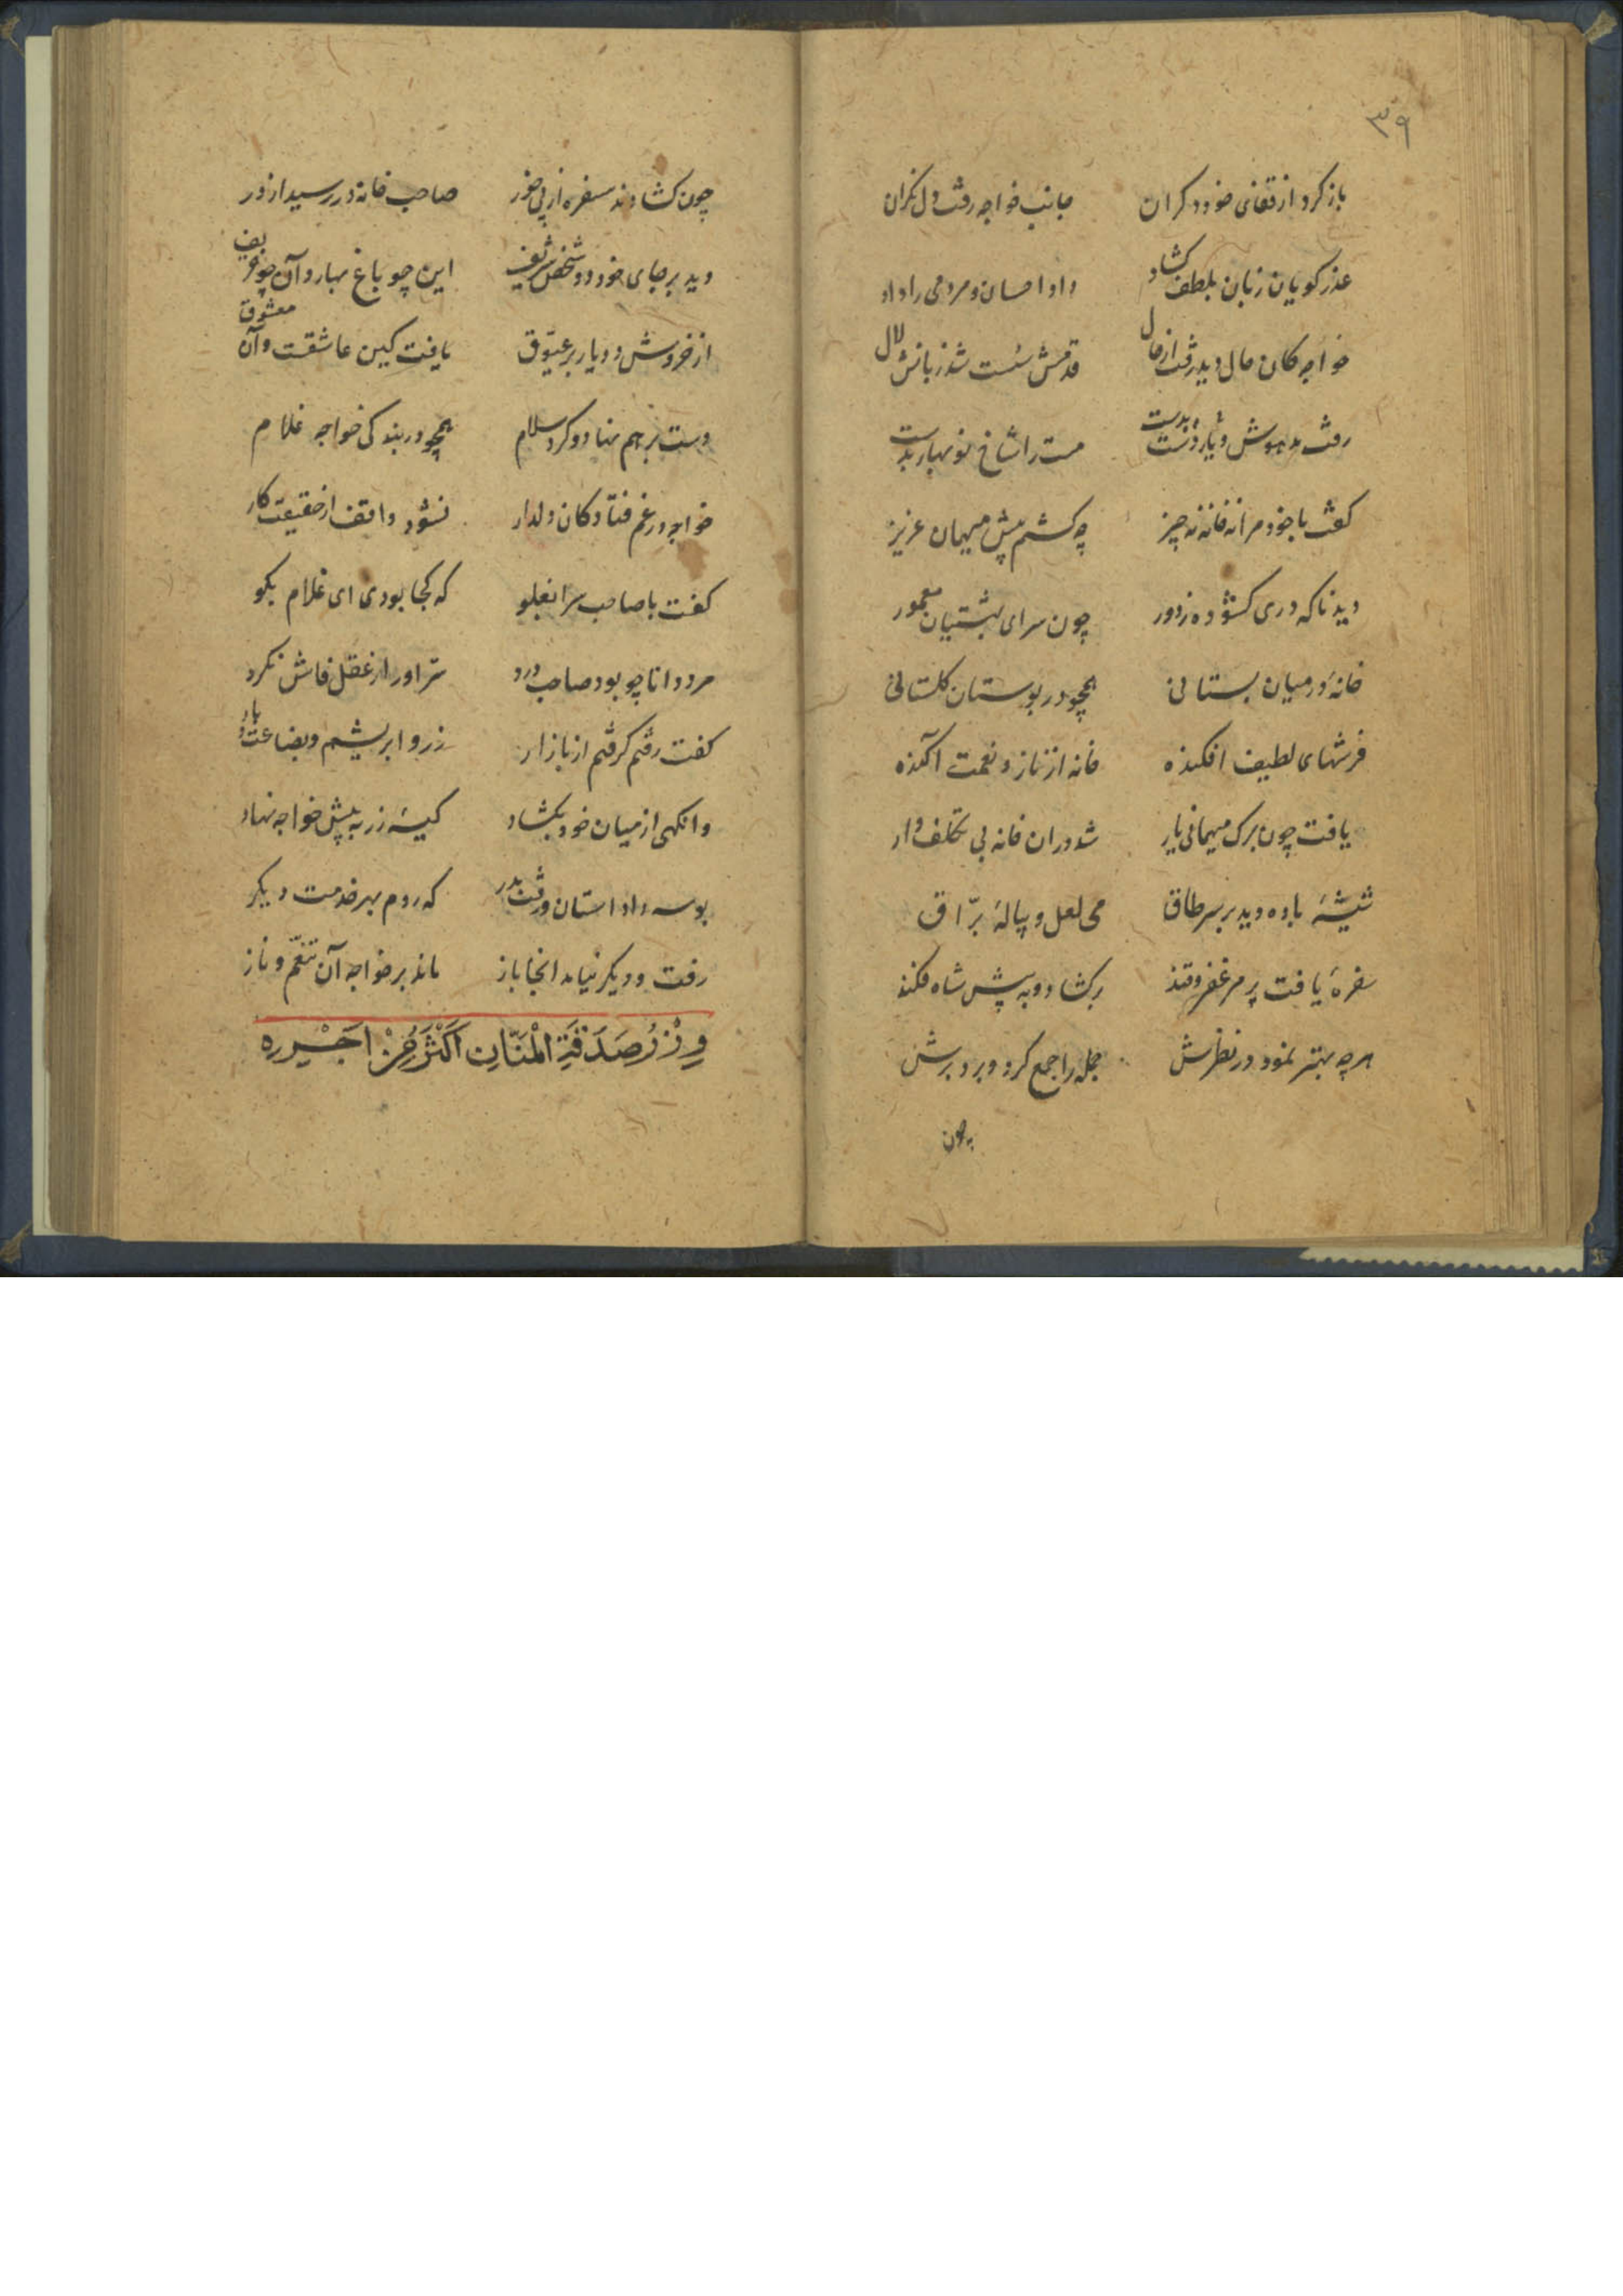 ۳۹
باز کرد از قفای خود دکران جانب خواجه رفت دل نکران
عذر کویان زبان بلطف کشاد داد احسان و مردمی را داد
خواجه کان حال دید رفت از حال قدمش سست شد زبانش لال
رفت مدهوش و یار دست بدست مست را شاخ نوبهار بدست
کفت با خود مرا نه خانه نه چیز چه کشم پیش میهمان عزیز
دید ناکه دری کشوده ز دور چون سرای بهشتیان معمور
خانه در میان بستانی همچو در بوستان کلستانی
فرشهای لطیف افکنده خانه از ناز و نعمت آکنده
یافت چون برک میهمانی یار شد در ان خانه بی تکلف وار
شیشهٔ باده دید بر سر طاق می لعل و پیالهٔ برّاق
سفرهٔ یافت پر مرغفر و قند بر کشاد و به پیش شاه فکند
هرچه بهتر نمود در نظرش جمله را جمع کرد و برد برش
چون
چون کشادند سفره از پی خور صاحب خانه در رسید از در
دید بر جای خود دو شخص شریف این چو باغ بهار و آن چو خریف
از خروش دو یار بر عیّوق یافت کین عاشقست و آن معشوق
دست بر هم نهاد و کرد سلام همچو در بندکی خواجه غلام
خواجه در غم فتاد کان دلدار نشود واقف از حقیقت کار
کفت با صاحب سرا بغلو که کجا بودی ای غلام بکو
مرد دانا چو بود صاحب درد سرّ او را ز عقل فاش نکرد
کفت رفتم کرفتم از بازار زر و ابریشم و بضاعت بار
وانکهی از میان خود بکشاد کیسهٔ زر به پیش خواجه نهاد
بوسه داد استان و رفت بدر که روم بهر خدمت دیکر
رفت و دیکر نیامد انجا باز ماند بر خواجه آن تنعّم و ناز
وِزْرُ صَدَقَةِ الْمَنّانِ اَکْثَرُ مِنْ اَجْرِه